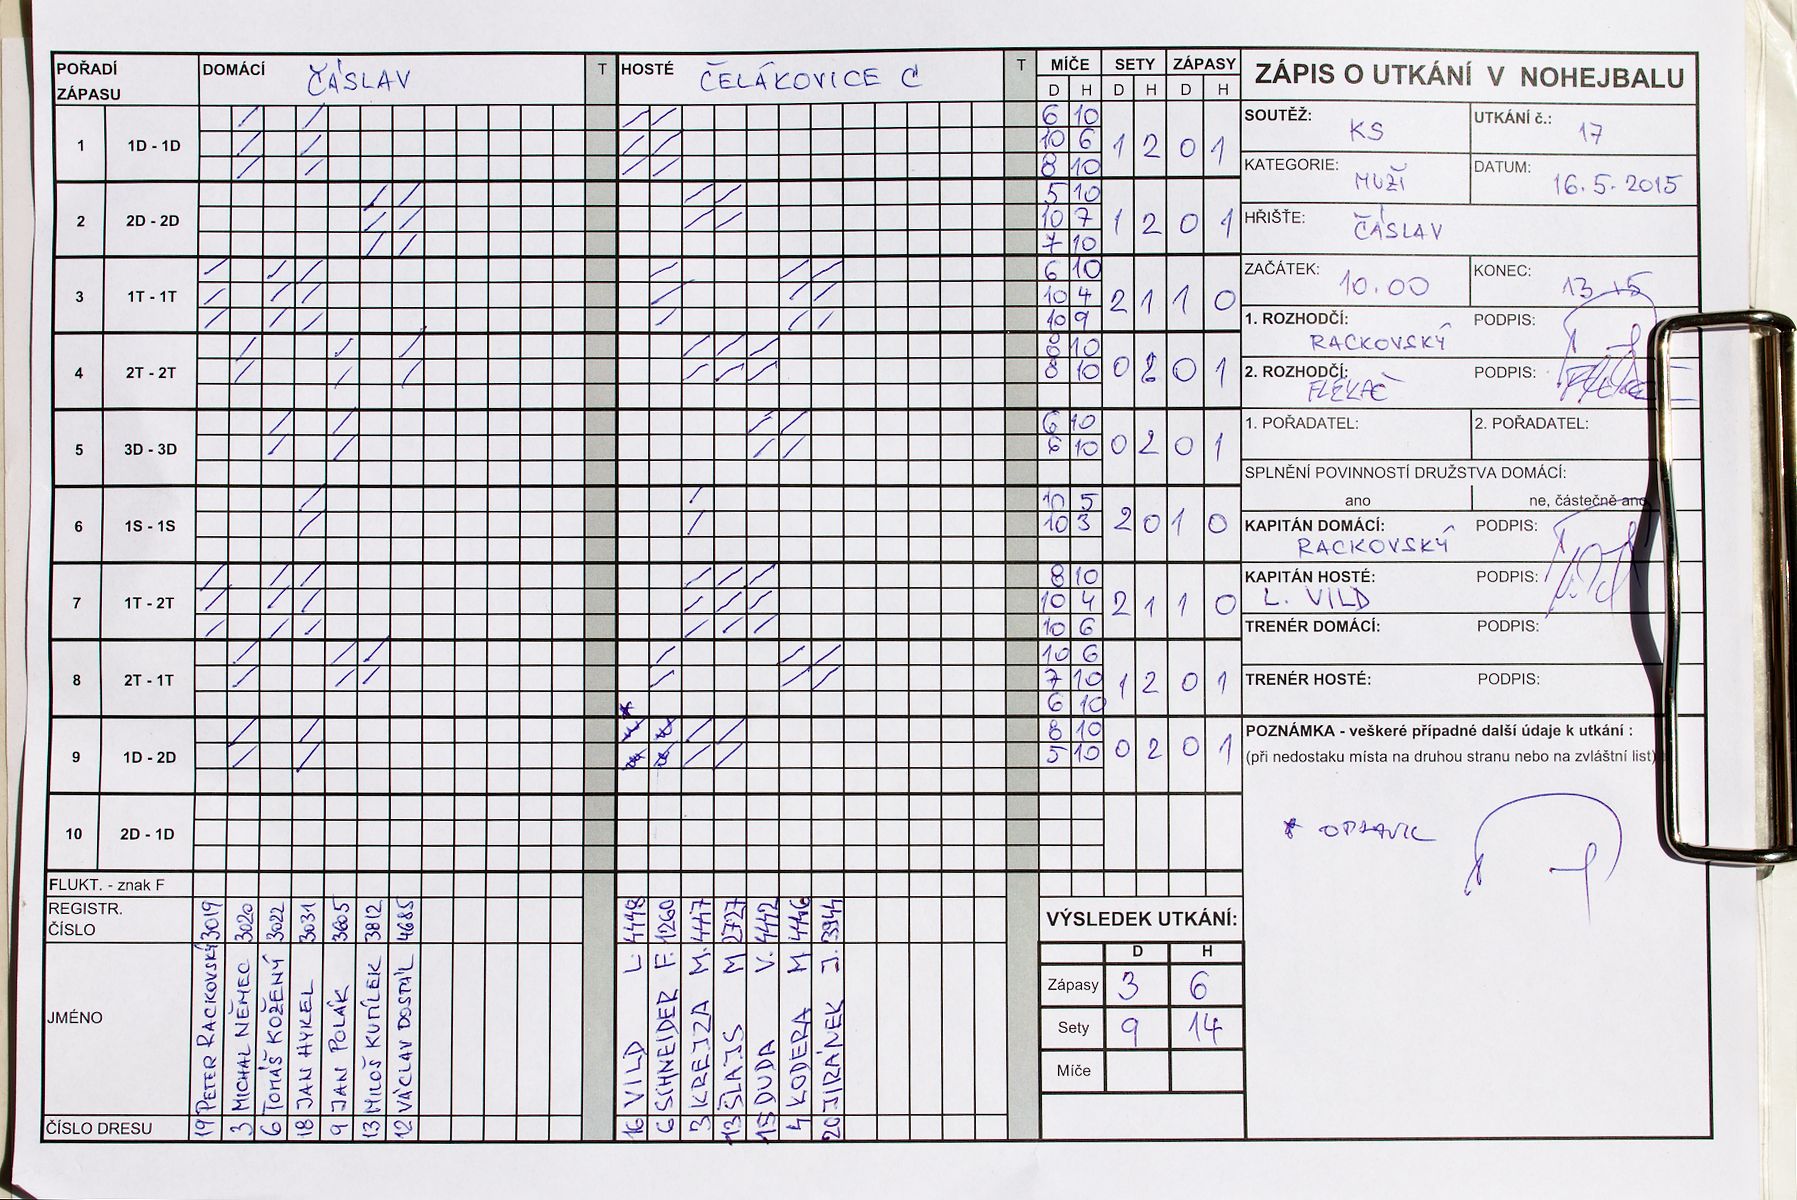 POŘADÍ ZÁPASU
DOMÁCÍ ČÁSLAV T
HOSTÉ ČELÁKOVICE C T
MÍČE SETY ZÁPASY
D H D H D H
1 1D - 1D
6 10
10 6
8 10
1 2 0 1
2 2D - 2D
5 10
10 7
7 10
1 2 0 1
3 1T - 1T
6 10
10 4
10 9
2 1 1 0
4 2T - 2T
10
8 10
0 2 0 1
5 3D - 3D
6 10
6 10
0 2 0 1
6 1S - 1S
10 5
10 3
2 0 1 0
7 1T - 2T
8 10
10 4
10 6
2 1 1 0
8 2T - 1T
10 6
7 10
6 10
1 2 0 1
9 1D - 2D
8 10
5 10
0 2 0 1
10 2D - 1D
FLUKT. - znak F
REGISTR. ČÍSLO
3019 3020 3022 3031 3605 3812 4685
4448 1260 4447 2727 4442 4446 3944
JMÉNO
PETER RACKOVSKÝ
MICHAL NĚMEC
TOMÁŠ KOŽENÝ
JAN HYKEL
JAN POLÁK
MILOŠ KUTÍLEK
VÁCLAV DOSTÁL
VILD L.
SCHNEIDER F.
KREJZA M.
ŠLAJS M
DUDA V.
KODERA M
JIRÁNEK J.
ČÍSLO DRESU
19 3 6 18 9 13 12
16 6 3 13 15 4 20
ZÁPIS O UTKÁNÍ V NOHEJBALU
SOUTĚŽ: KS
UTKÁNÍ č.: 17
KATEGORIE: MUŽI
DATUM: 16.5.2015
HŘIŠTĚ: ČÁSLAV
ZAČÁTEK: 10.00
KONEC: 13 15
1. ROZHODČÍ: RACKOVSKÝ PODPIS:
2. ROZHODČÍ: FLEKAČ PODPIS:
1. POŘADATEL: 2. POŘADATEL:
SPLNĚNÍ POVINNOSTÍ DRUŽSTVA DOMÁCÍ:
ano ne, částečně ano
KAPITÁN DOMÁCÍ: RACKOVSKÝ PODPIS:
KAPITÁN HOSTÉ: L. VILD PODPIS:
TRENÉR DOMÁCÍ: PODPIS:
TRENÉR HOSTÉ: PODPIS:
POZNÁMKA - veškeré případné další údaje k utkání :
(při nedostaku místa na druhou stranu nebo na zvláštní list)
VÝSLEDEK UTKÁNÍ:
D H
Zápasy 3 6
Sety 9 14
Míče